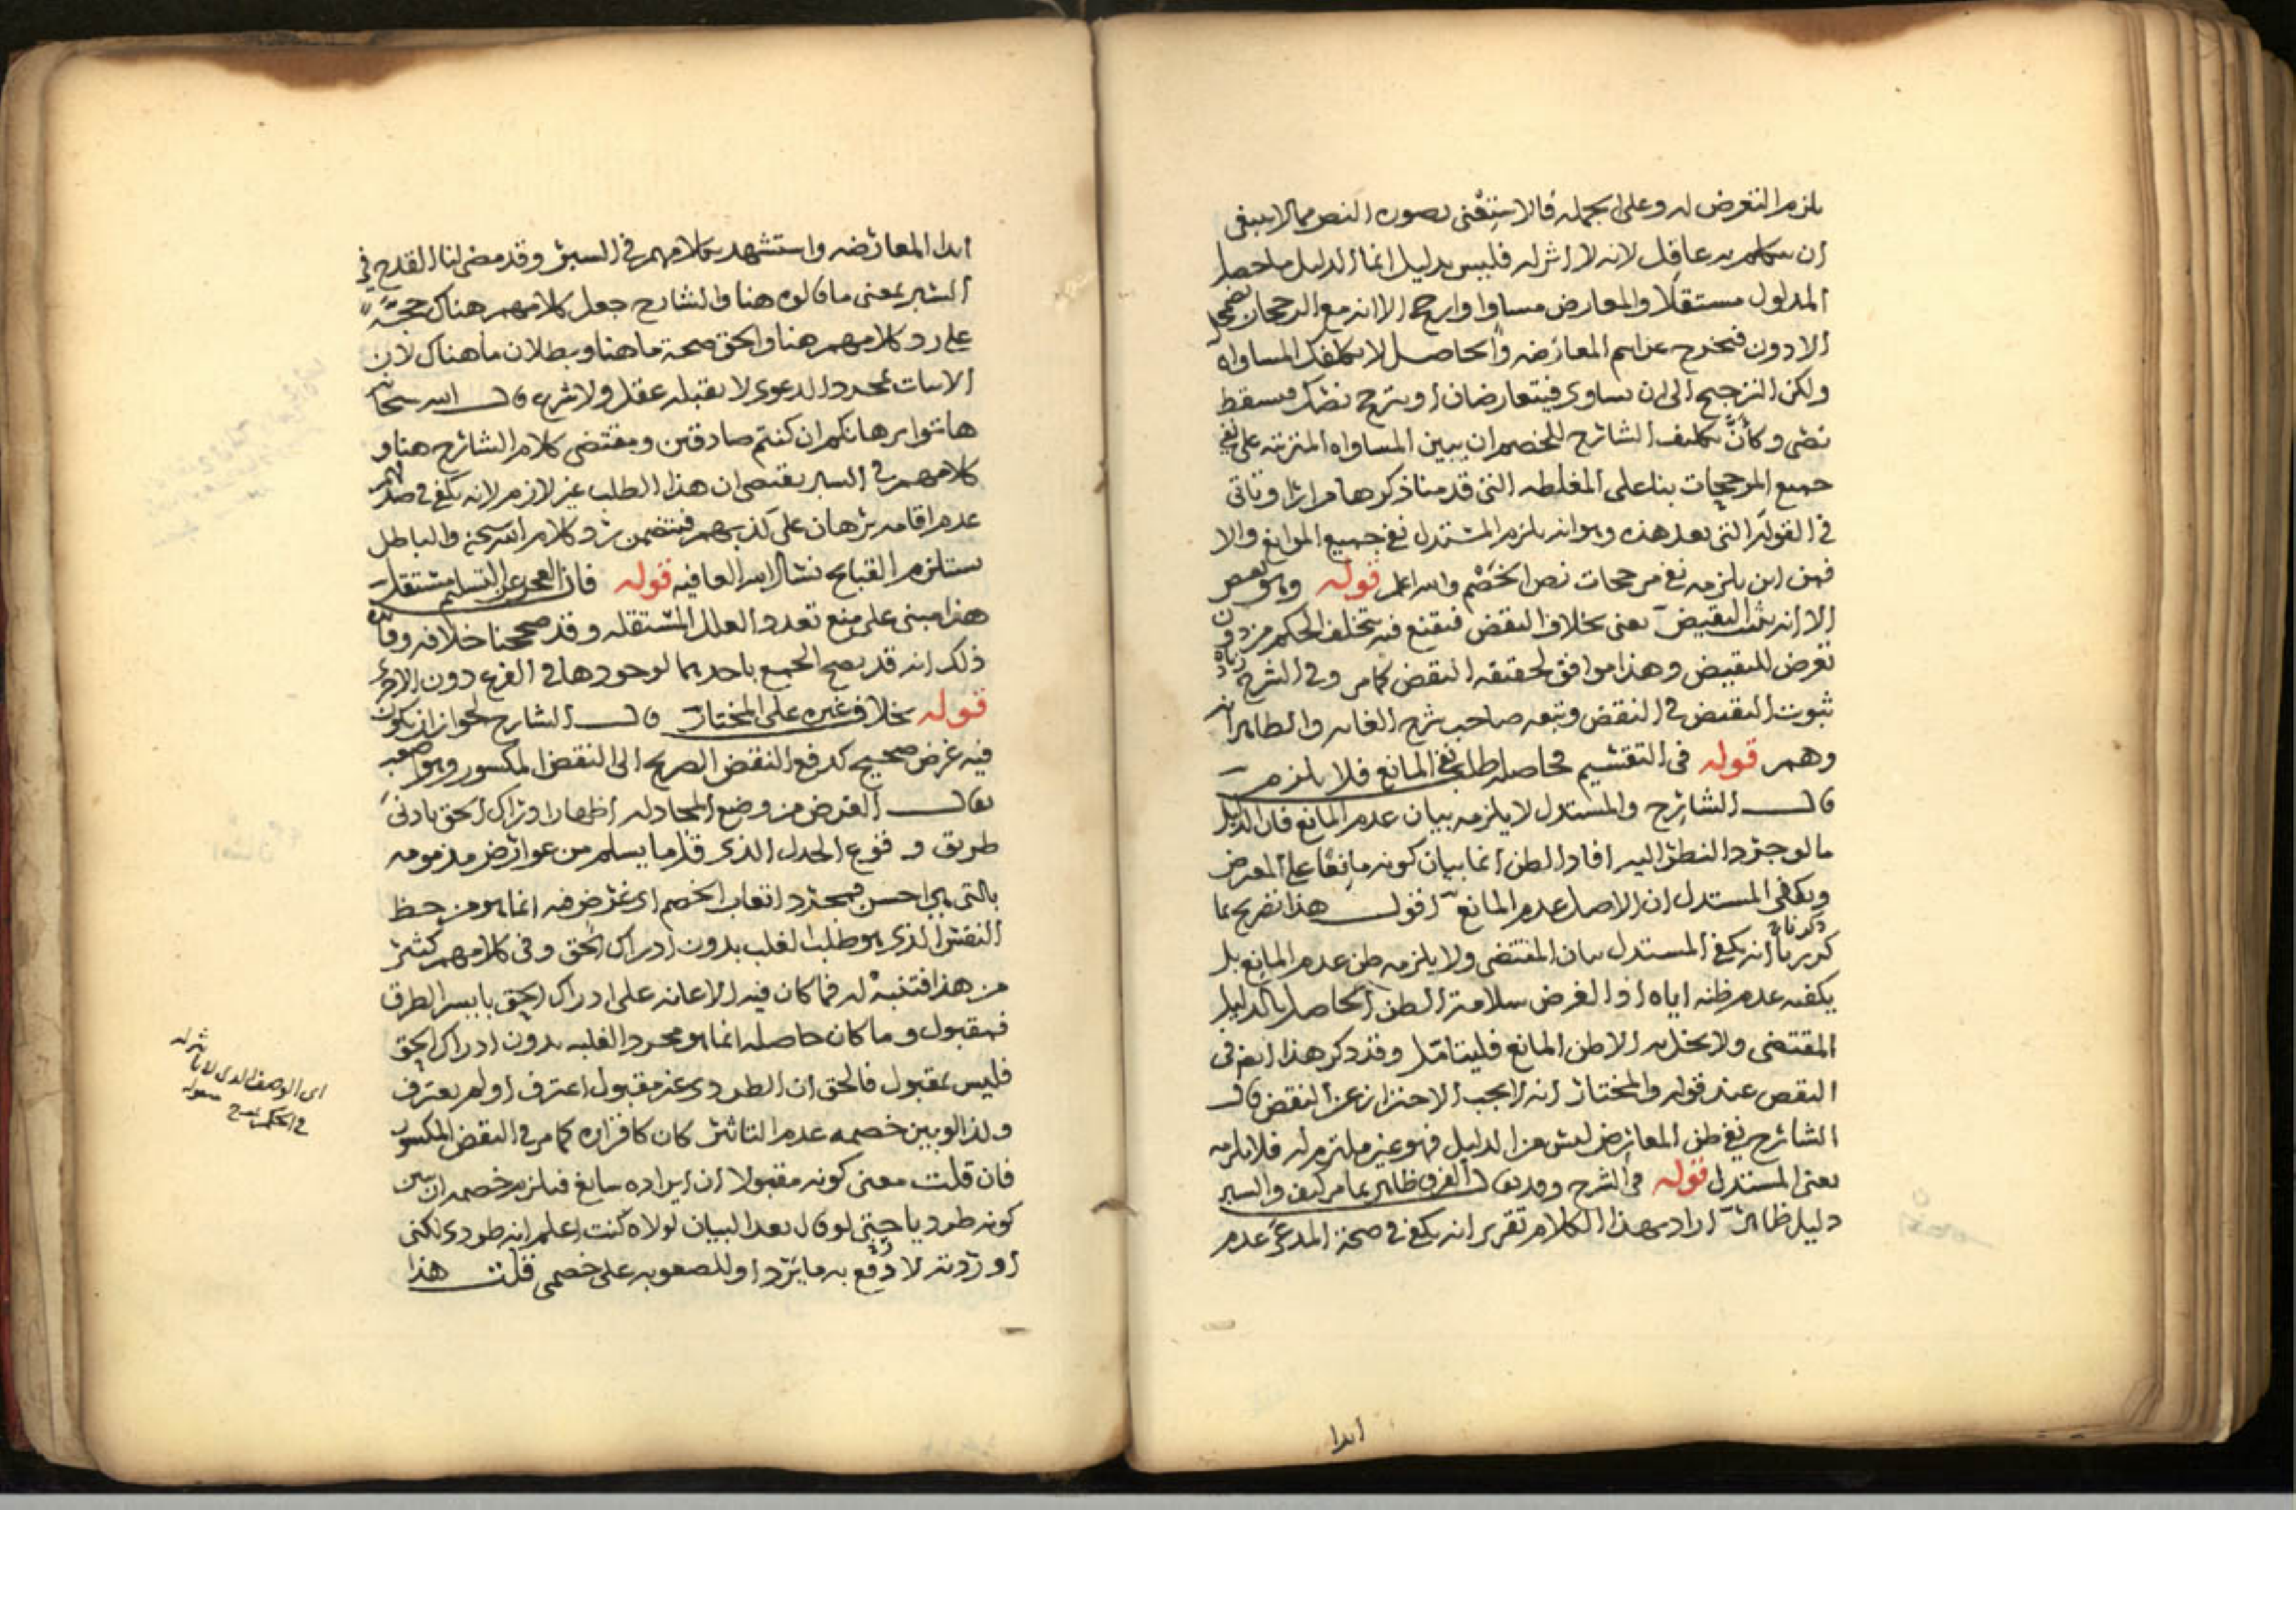 يلزم التعرض له وعلى الجملة فالاستغنى بصورة النص مما لا ينبغى
ان يتكلم به عاقل لانه لا اثر له فليس بدليل انما الدليل ما حصل
المدلول مستقلا والمعارض مساوا وارجح الا انه مع الرجحان يضمحل
الادون فيخرج عن اسم المعارضه والحاصل لا يكلفك المساواه
ولكن الترجيح الى ان يساوى فيتعارضان او يترجح نصك فيسقط
نصى وكأنَّ تكليف الشارح للخصم ان يبين المساواه المترتبه على نفى
جميع المرجحات بناء على المغلطه التى قدمنا ذكرها مرارا وتاتى
فى القوله التى بعد هذه وهو انه يلزم المستدل نفى جميع الموانع والا
فمن اين يلزمه نفى مرجحات نص الخصم والله اعلم قوله وهو نقض
الا انه يثبت النقيض يعنى بخلاف النقض فيقنع فيه تخلف الحكم من دون
تعرض للنقيض وهذا موافق لحقيقه النقض كما مر وفى الشرح زياده
ثبوت النقيض فى النقض وتبعه صاحب شرح الغايه والظاهر انه
وهم قوله فى التقسيم فحاصله طلب نفى المانع فلا يلزم
قال الشارح والمستدل لا يلزمه بيان عدم المانع فان الدليل
ما لو جرد النظر اليه افاد الظن انما بيان كونه مانعا على المعترض
ويكفى المستدل ان الاصل عدم المانع اقول هذا تصريح بما
ذكرناه
كررنا انه يكفى المستدل بيان المقتضى ولا يلزمه ظن عدم المانع بل
يكفيه عدم ظنه اياه اذ الغرض سلامة الظن الحاصل بالدليل
المقتضى ولا يخل به الا ظن المانع فليتامل وقد ذكر هذا ايضا فى
النقض عند قوله والمختار انه لا يجب الاحتراز عن النقض قال
الشارح نفى ظن المعارض ليس من الدليل فهو غير ملتزم له فلا يلزمه
يعنى المستدل قوله فى الشرح وقد يقال الفرق ظاهر بما مر كيف والسبر
دليل ظاهر اراد بهذا الكلام تقرير انه يكفى فى صحة المدعى عدم
ابدا
ابدا المعارضه واستشهد بكلامهم فى السبر وقد مضى لنا القدح فى
السبر بمعنى ما قالوه هنا والشارح جعل كلامهم هناك حجةً
على رد كلامهم هنا والحق صحة ما هنا وبطلان ما هناك لان
الاثبات بمجرد الدعوى لا يقبله عقل ولا شرع قال الله سبحانه
هاتوا برهانكم ان كنتم صادقين ومقتضى كلام الشارح هنا و
كلامهم فى السبر يقتضى ان هذا الطلب غير لازم لانه يكفى فى صدقهم
عدم اقامه برهان على كذبهم فيتضمن رد كلام الله سبحنه والباطل
يستلزم القبايح نسال الله العافيه قوله فان العجز عن التسليم مستقل
هذا مبنى على منع تعدد العلل المستقله وقد صححنا خلافه وفائدة
ذلك انه قد يصح الجميع باحديهما لوجودها فى الفرع دون الاخرى
قوله بخلاف غيره على المختار قال الشارح لجواز ان يكون
فيه غرض صحيح كدفع النقض الصريح الى النقض المكسور وهو اصعب
يقال الغرض من وضع المجادله اظهار ادراك الحق بادنى
طريق و قنوع الجدل الذى قل ما يسلم من عوارض مذمومه
بالتى هى احسن فمجرد اتعاب الخصم اى غرض فيه انما هو من حظ
النفس الذى هو طلب الغلب بدون ادراك الحق وفى كلامهم كثير
من هذا فتنبه له فما كان فيه الاعانه على ادراك الحق بايسر الطرق
فمقبول وما كان حاصله انما هو مجرد الغلبه بدون ادراك الحق
فليس بمقبول فالحق ان الطردى غير مقبول اعترف او لم يعترف
ولذا لو بين خصمه عدم التاثير كان كاقراره كما مر فى النقض المكسور
فان قلت معنى كونه مقبولا ان ايراده سايغ فيلزم خصمه ان يبين
كونه طرديا حتى لو قال بعد البيان لولاه كنت اعلم انه طردى لكنى
اوردته لادفع به ما يَرد او للصعوبه على خصمى قلت هذا
اى الوصف الذى لا تاثير له
فى الحكم